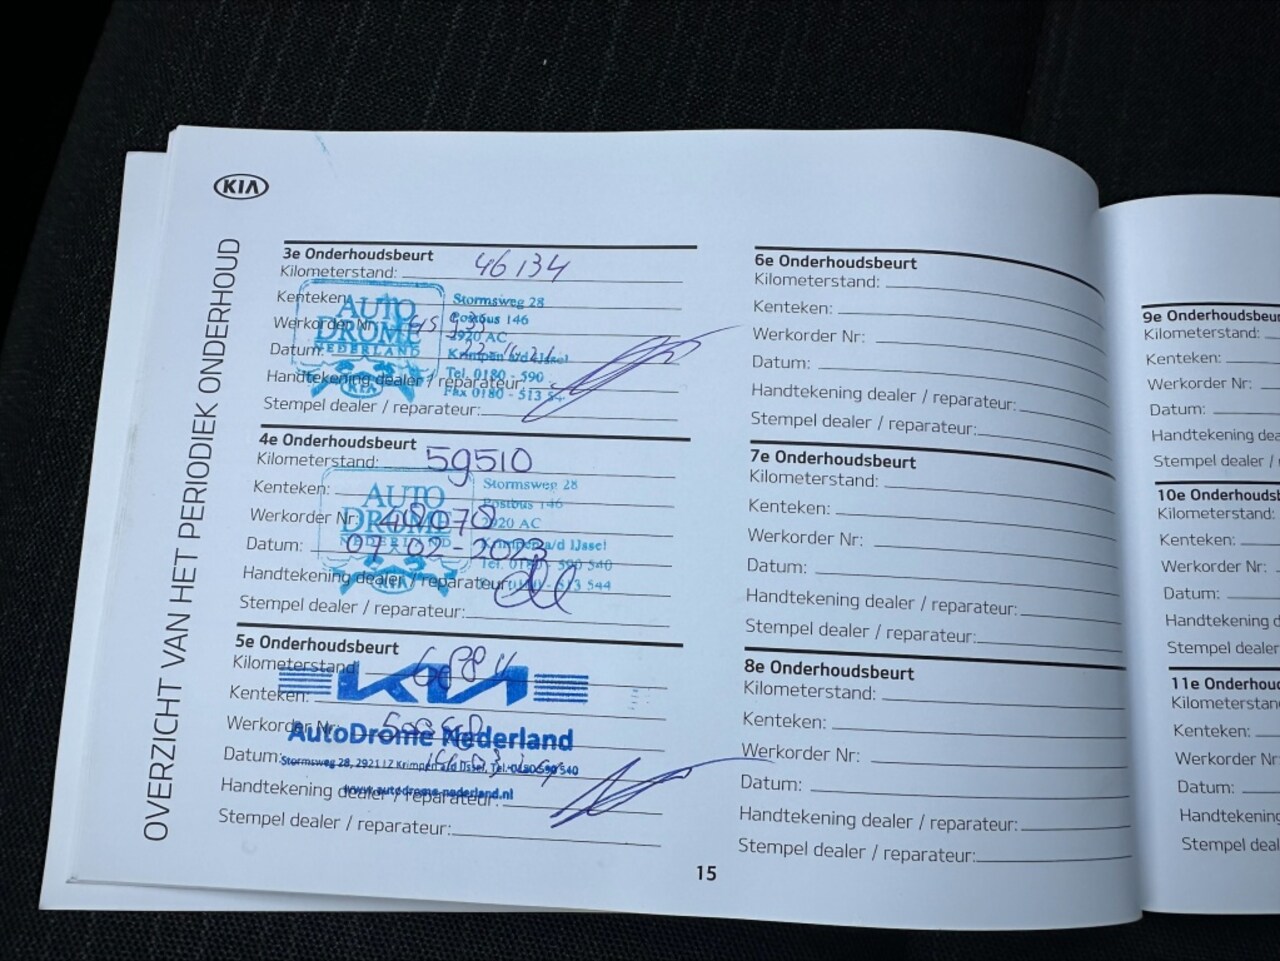 KIA
OVERZICHT VAN HET PERIODIEK ONDERHOUD
3e Onderhoudsbeurt
Kilometerstand: 46134
Kenteken:
Werkorder Nr:
Datum:
Handtekening dealer / reparateur:
Stempel dealer / reparateur:
AUTO
DROME
NEDERLAND
KIA
Stormsweg 28
Postbus 146
2920 AC
Krimpen a/d IJssel
Tel. 0180 - 590
Fax 0180 - 513 54
4e Onderhoudsbeurt
Kilometerstand: 59510
Kenteken:
Werkorder Nr: 48070
Datum: 07-02-2023
Handtekening dealer / reparateur:
Stempel dealer / reparateur:
AUTO
DROME
NEDERLAND
KIA
Stormsweg 28
Postbus 146
2920 AC
Krimpen a/d IJssel
Tel. 0180 - 590 540
0180 - 513 544
5e Onderhoudsbeurt
Kilometerstand:
Kenteken:
Werkorder Nr:
Datum:
Handtekening dealer / reparateur:
Stempel dealer / reparateur:
KIA
AutoDrome Nederland
Stormsweg 28, 2921 LZ Krimpen a/d IJssel, Tel. 0180 590 540
www.autodrome-nederland.nl
6e Onderhoudsbeurt
Kilometerstand:
Kenteken:
Werkorder Nr:
Datum:
Handtekening dealer / reparateur:
Stempel dealer / reparateur:
7e Onderhoudsbeurt
Kilometerstand:
Kenteken:
Werkorder Nr:
Datum:
Handtekening dealer / reparateur:
Stempel dealer / reparateur:
8e Onderhoudsbeurt
Kilometerstand:
Kenteken:
Werkorder Nr:
Datum:
Handtekening dealer / reparateur:
Stempel dealer / reparateur:
15
9e Onderhoudsbeur
Kilometerstand:
Kenteken:
Werkorder Nr:
Datum:
Handtekening dea
Stempel dealer /
10e Onderhoudsb
Kilometerstand:
Kenteken:
Werkorder Nr:
Datum:
Handtekening d
Stempel dealer
11e Onderhoud
Kilometerstand
Kenteken:
Werkorder Nr:
Datum:
Handtekening
Stempel deal